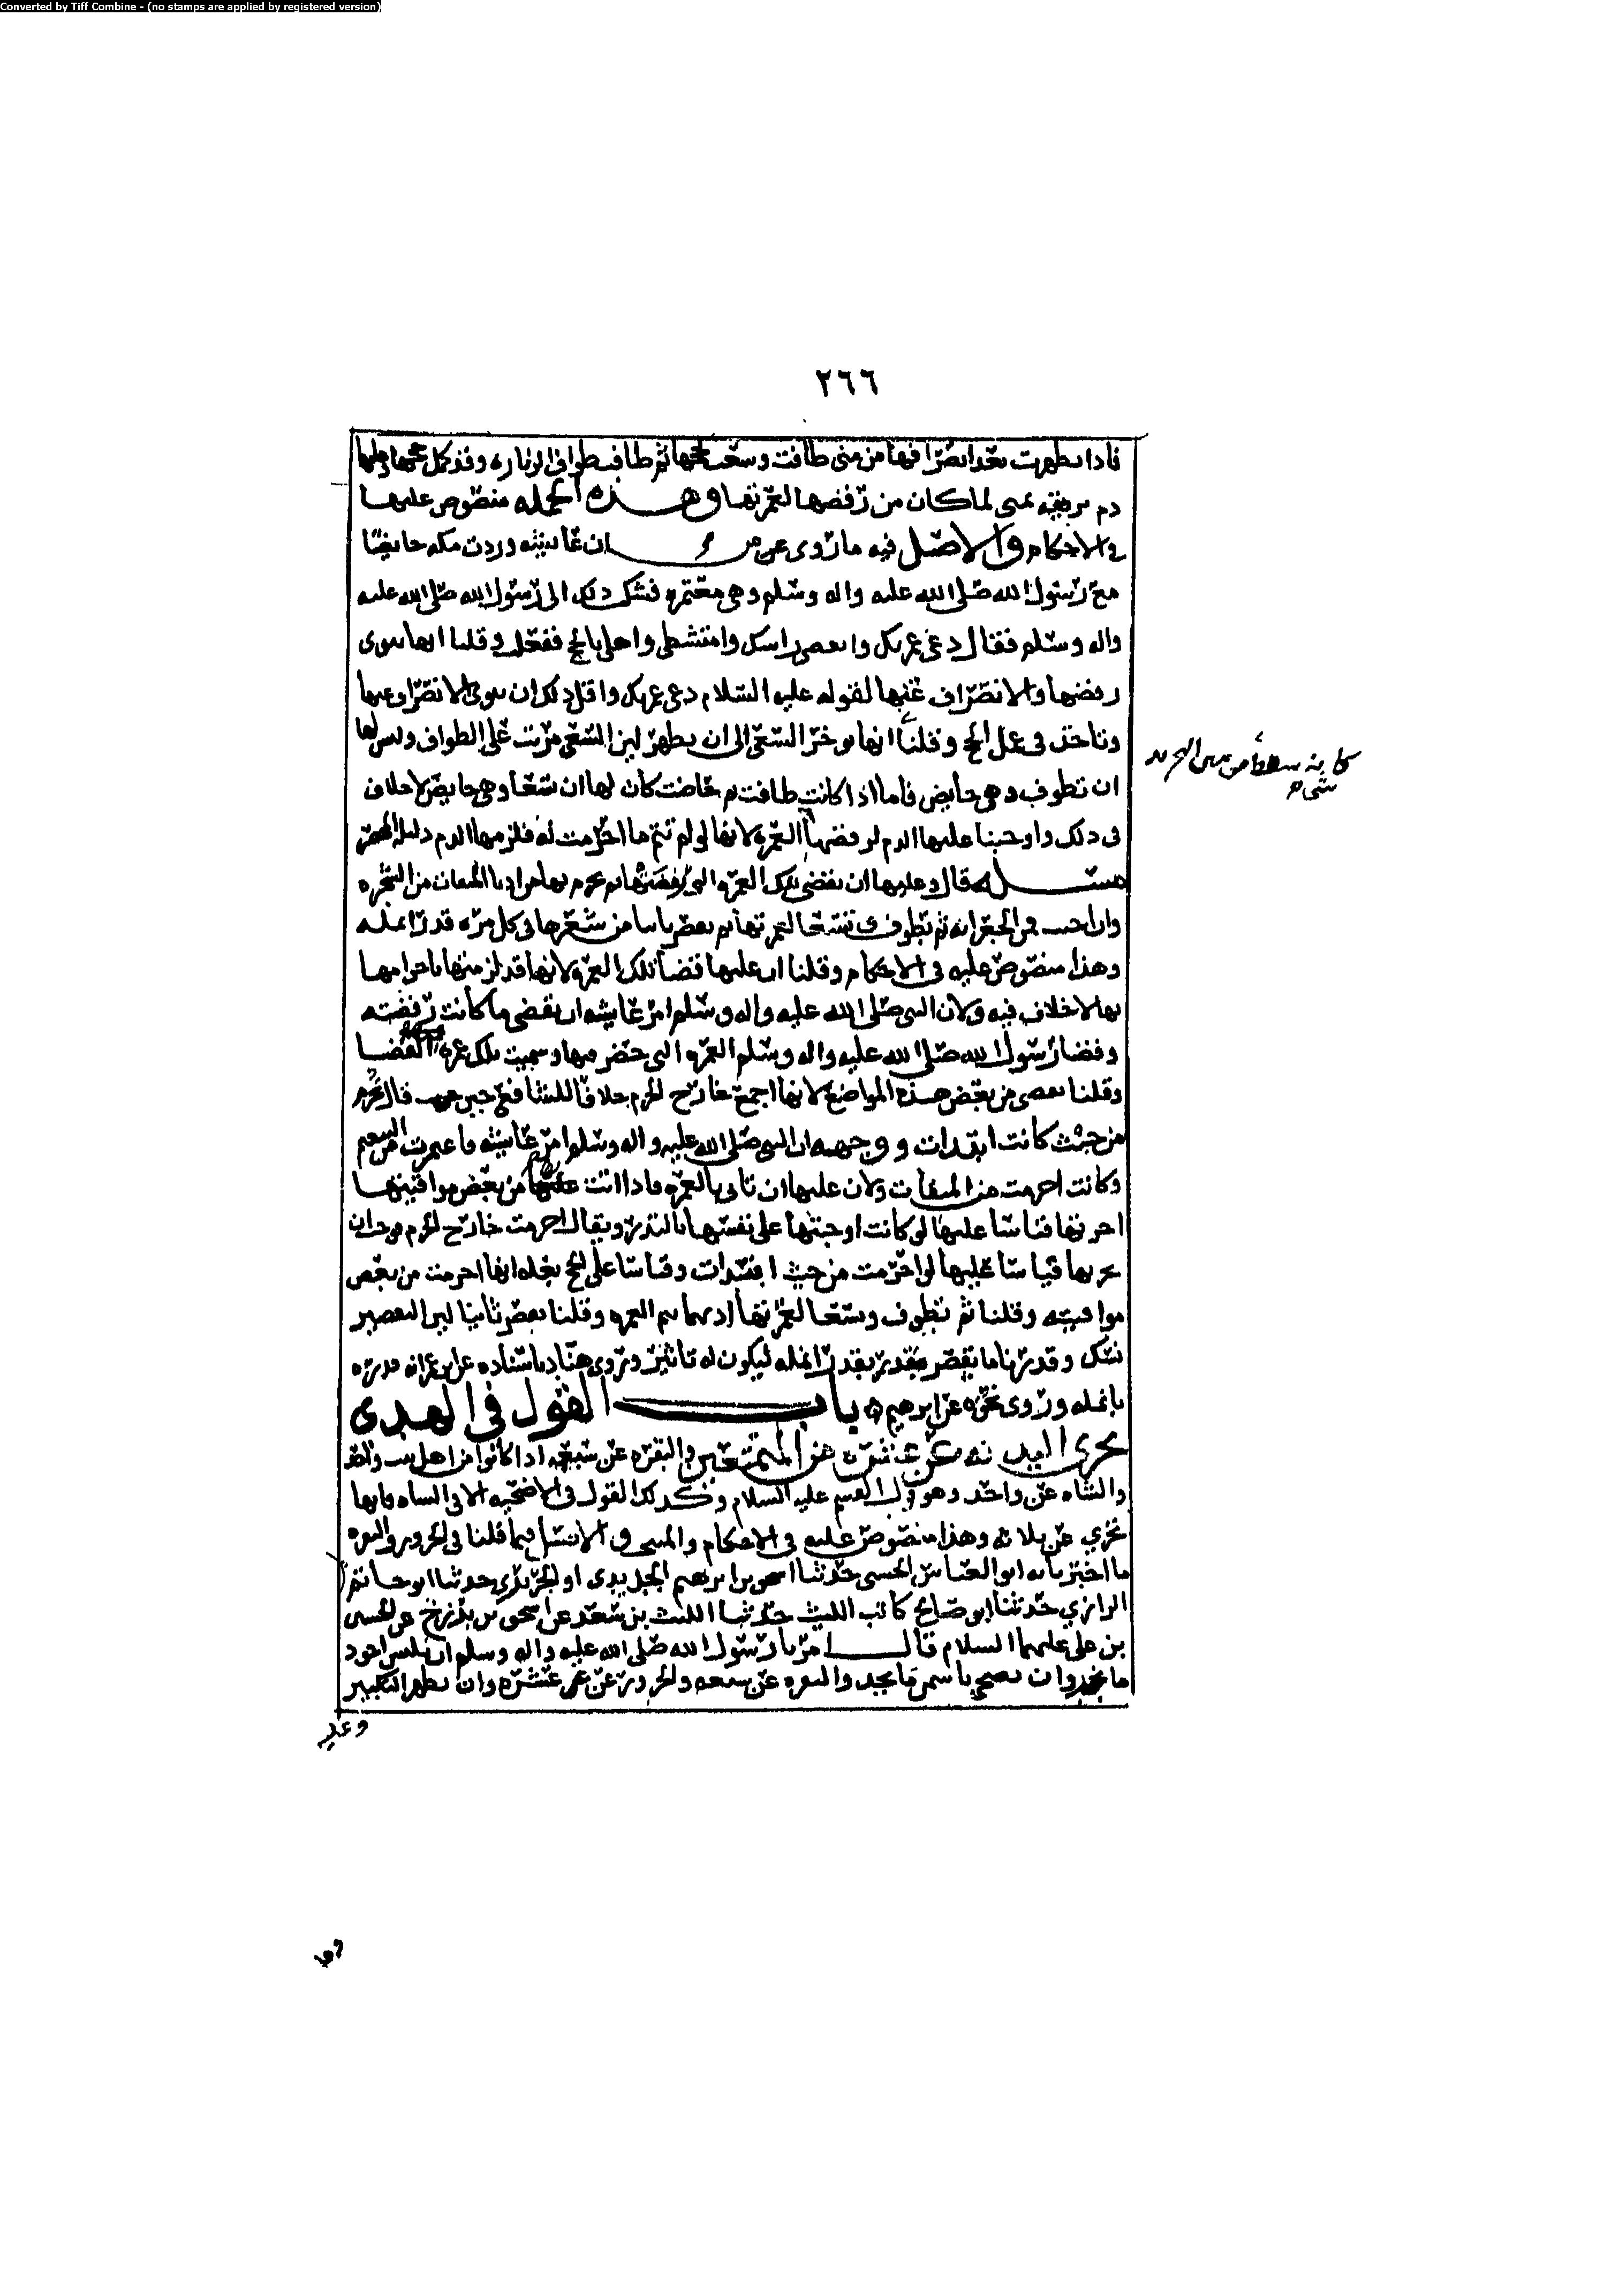 Converted by Tiff Combine - (no stamps are applied by registered version)
٢٦٦
فاذا تطهرت بعد انصرافها من منى طافت وسعت لحجها ثم طافت طواف الزيارة وقد كمل حجها وعليها
دم تريقه بمنى لما كان من رفضها لعمرتها وهذه الجمله منصوص عليها
في الاحكام والاصل فيه ما روى ان عائشه وردت مكه حايضا
مع رسول الله صلى الله عليه واله وسلم وهي معتمره فشكت ذلك الى رسول الله صلى الله عليه
واله وسلم فقال دعي عمرتك وانقضي راسك وامتشطي واهلي بالحج ففعلت وقلنا انها تنوى
رفضها والانصراف عنها لقوله عليه السلام دعي عمرتك واقل ذلك ان تنوي الانصراف عنها
وتاخذ في عمل الحج وقلنا انها توخر السعي الى ان تطهر لان السعي مرتب على الطواف وليس لها
ان تطوف وهي حايض فاما اذا كانت طافت ثم حاضت كان لها ان تسعا وهي حايض لا خلاف
في ذلك واوجبنا عليها الدم لرفضها العمره لانها لو لم تتم ما احرمت له فلزمها الدم دليله المحصر
مسئله قال وعليها ان تقضي تلك العمره التي رفضتها ثم تحرم بها من ادنا المواقيت من الشجره
وان احبت فمن الجعرانه ثم تطوف وتسعا لعمرتها ثم تقصر ثانيا من شعرها في كل مره قدر انمله
وهذا منصوص عليه في الاحكام وقلنا ان عليها قضا تلك العمره لانها قد لزمتها باحرامها
بها لا خلاف فيه ولان النبي صلى الله عليه واله وسلم امر عايشه ان تقضي ما كانت رفضته
وقضا رسول الله صلى الله عليه واله وسلم العمره التي حضر فيها وسميت تلك عمره القضا
وقلنا تقضي من بعض هذه المواضع لانها اجمع خارج الحرم خلافا للشافعي حين قال تحرم
من حيث كانت ابتدات ووجهه ان النبي صلى الله عليه واله وسلم امر عايشه فاعتمرت من التنعيم
وكانت احرمت من الميقات ولان عليها ان تاتي بالعمره فاذا اتت من بعض مواقيتها
اجزتها قياسا عليها لو كانت اوجبتها على نفسها بالنذر ويقال احرمت خارج الحرم فوجب ان
تجزيها قياسا عليها لو احرمت من حيث ابتدات وقياسا على الحج بعله انها احرمت من بعض
مواقيته وقلنا ثم تطوف وتسعا لعمرتها اذ بهما تتم العمره وقلنا تقصر ثانيا لان التقصير
نسك وقدرنا ما تقصر بقدر انمله ليكون له تاثير وروى هناد باسناده عن ابن عمر انه قدره
بانمله وروى نحوه عن ابرهيم ه باب القول في الهدى
تجزى البدنه عن عشره من المتمتعين والبقره عن سبعه اذا كانوا من اهل بيت واحد
والشاه عن واحد وهو قول القسم عليه السلام وكذلك القول في الاضحيه الا في الشاه فانها
تجزي عن ثلاثه وهذا منصوص عليه في الاحكام والمنتخب والاصل فيما قلنا في الجزور والبقره
ما اخبرنا به ابو العباس الحسنى حدثنا اسحق بن ابرهيم حدثنا ابو حاتم
الرازي حدثنا ابو صالح كاتب الليث حدثنا الليث بن سعد عن اسحق بن بزرج عن الحسن
بن علي عليهما السلام قال امرنا رسول الله صلى الله عليه واله وسلم ان نلبس اجود
ما نجد وان نضحي باسمن ما نجد والبقره عن سبعه والجزور عن عشره وان نظهر التكبير
وعليه